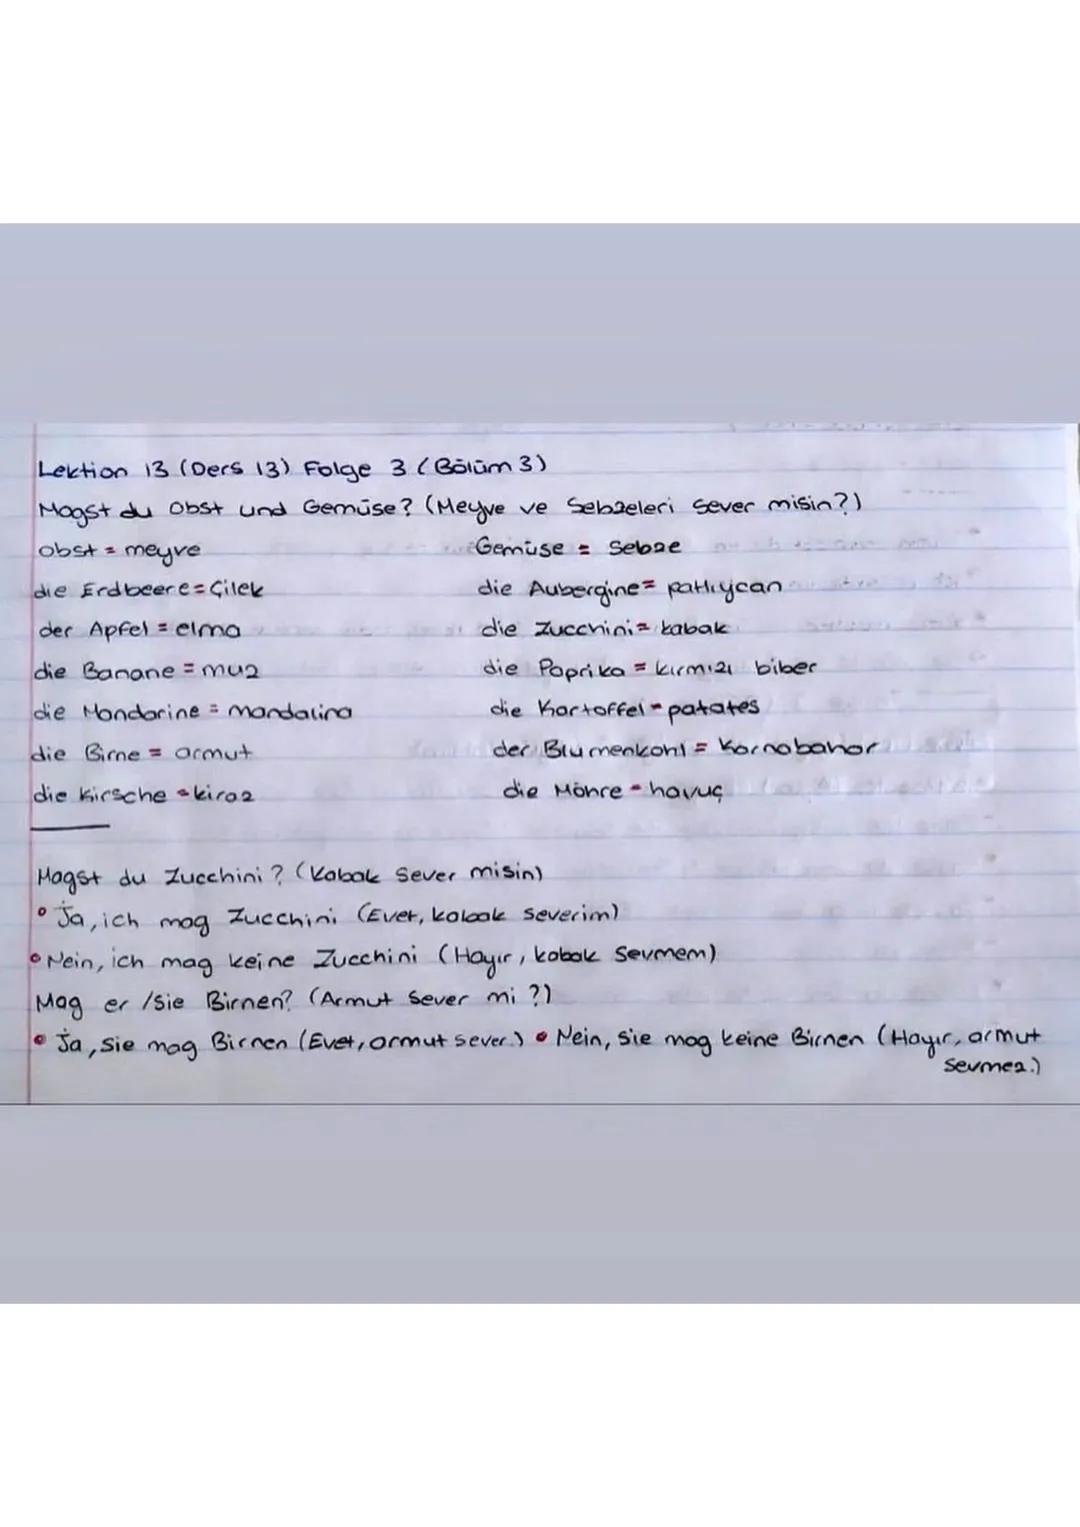 Lektion 13 (Ders 13) Folge 3 (Bölüm 3)
Magst du Obst und Gemüse? (Meyve ve Sebzeleri sever misin?)
Obst = meyve Gemüse = Sebze
die Erdbeere = Çilek die Aubergine = patlıycan
der Apfel = elma die Zucchini = kabak
die Banane = muz die Paprika = kırmızı biber
die Mandarine = mandalina die Kartoffel = patates
die Birne = armut der Blumenkohl = Karnabahar
die Kirsche = kiraz die Möhre = havuç
Magst du Zucchini? (Kabak Sever misin)
• Ja, ich mag Zucchini (Evet, kabak severim)
• Nein, ich mag keine Zucchini (Hayır, kabak Sevmem)
Mag er / Sie Birnen? (Armut Sever mi?)
• Ja, Sie mag Birnen (Evet, armut sever.) • Nein, sie mag keine Birnen (Hayır, armut
Sevmez.)